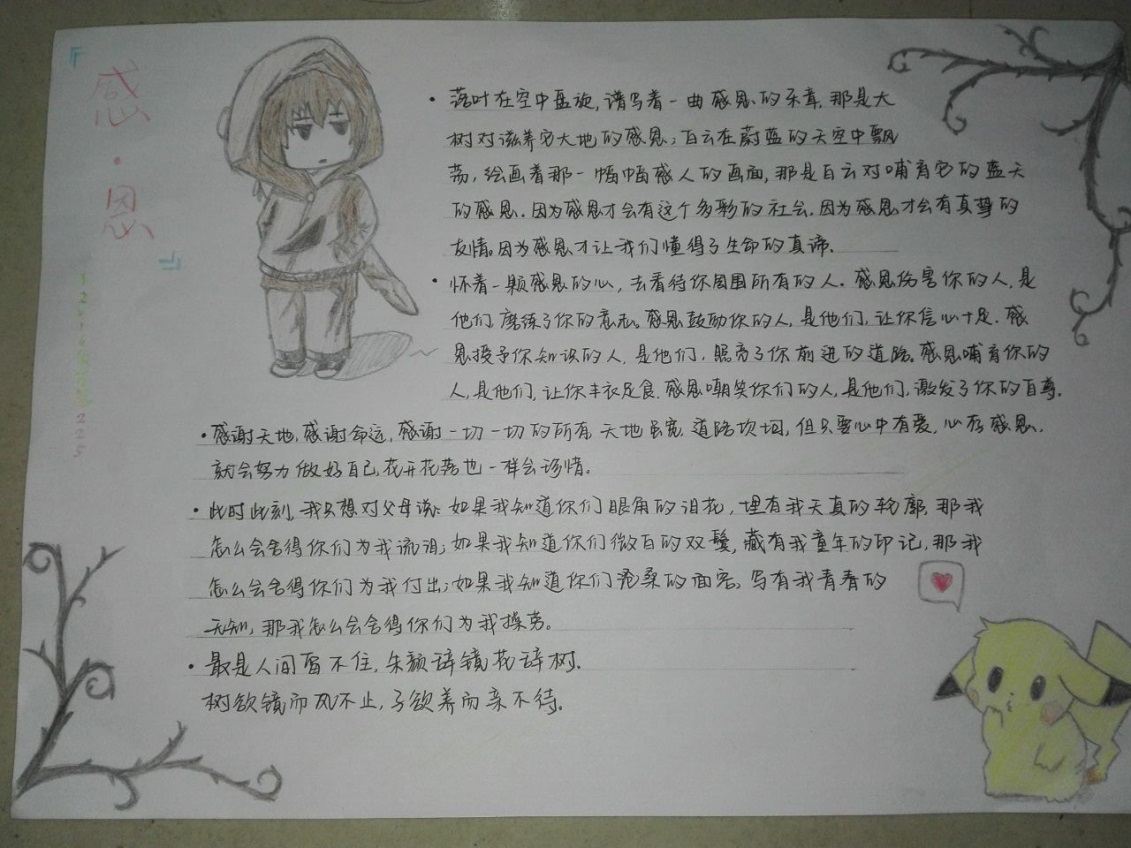 『感·恩』
• 落叶在空中盘旋,谱写着一曲感恩的乐章,那是大
树对滋养它大地的感恩;白云在蔚蓝的天空中飘
荡,绘画着那一幅幅感人的画面,那是白云对哺育它的蓝天
的感恩.因为感恩才会有这个多彩的社会.因为感恩才会有真挚的
友情.因为感恩才让我们懂得了生命的真谛.
• 怀着一颗感恩的心,去看待你周围所有的人.感恩伤害你的人,是
他们磨练了你的意志.感恩鼓励你的人,是他们,让你信心十足.感
恩授予你知识的人,是他们,照亮了你前进的道路.感恩哺育你的
人,是他们,让你丰衣足食.感恩嘲笑你们的人,是他们,激发了你的自尊.
• 感谢天地,感谢命运,感谢一切一切的所有.天地虽宽,道路坎坷,但只要心中有爱,心存感恩,
就会努力做好自己,花开花落也一样会珍惜。
• 此时此刻,我只想对父母说:如果我知道你们眼角的泪花,埋有我天真的轮廓,那我
怎么会舍得你们为我流泪;如果我知道你们微白的双鬓,藏有我童年的印记,那我
怎么会舍得你们为我付出;如果我知道你们沧桑的面容,写有我青春的
无知,那我怎么会舍得你们为我操劳。
• 最是人间留不住,朱颜辞镜花辞树.
树欲镜而风不止,子欲养而亲不待。